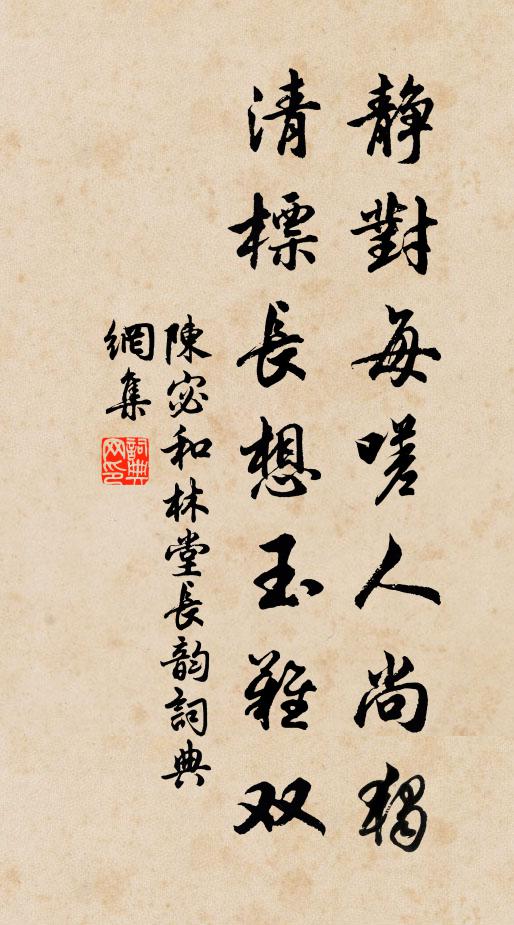 静對每嗟人尚獨
清標長想玉難双
陳宓和林堂長韵詞典
網集
詞典网印